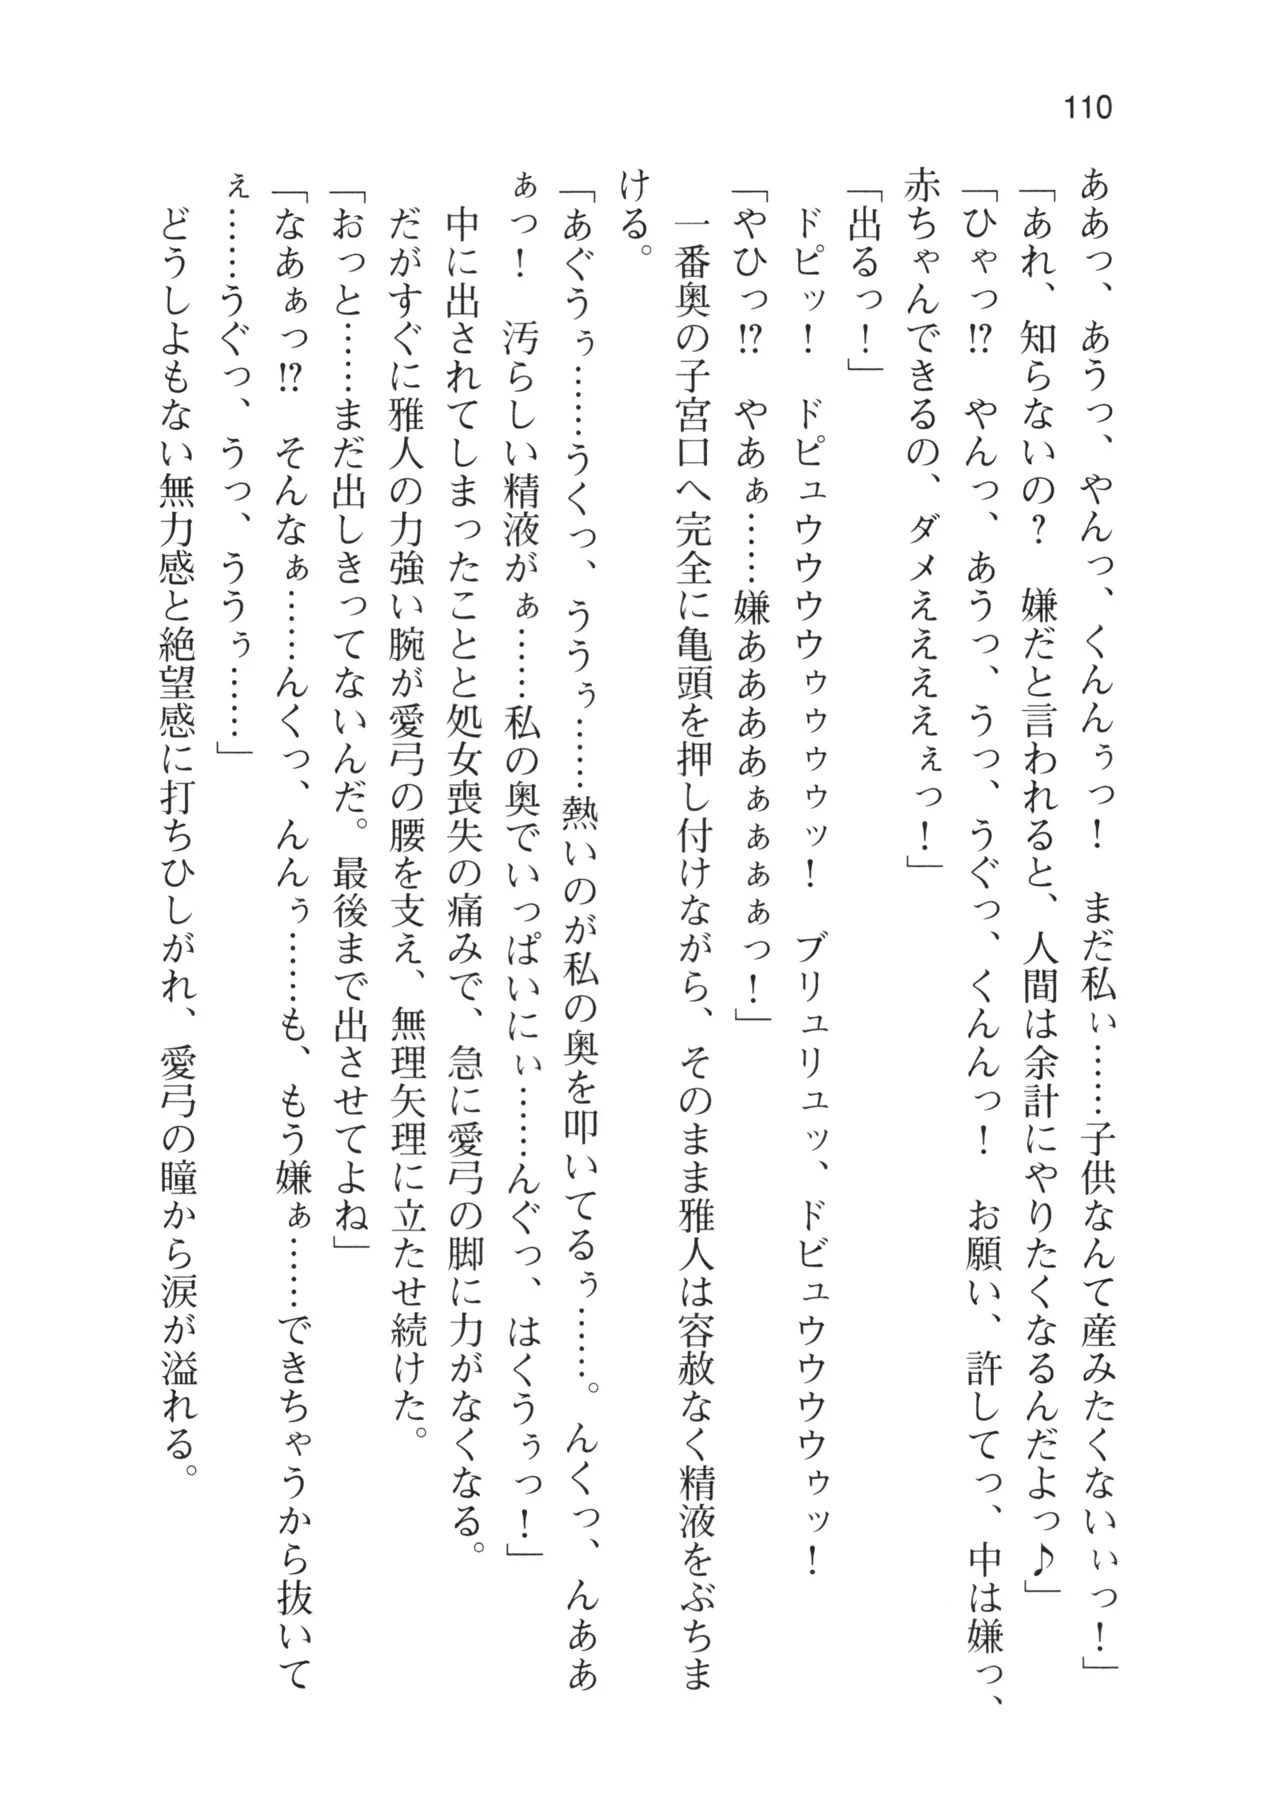 110
ああっ、あうっ、やんっ、くんんぅっ！　まだ私ぃ……子供なんて産みたくないぃっ！」
「あれ、知らないの？　嫌だと言われると、人間は余計にやりたくなるんだよっ♪」
「ひゃっ!?　やんっ、あうっ、うっ、うぐっ、くんんっ！　お願い、許してっ、中は嫌っ、
赤ちゃんできるの、ダメええええぇっ！」
「出るっ！」
　ドピッ！　ドピュウウウウゥゥゥゥッ！　ブリュリュッ、ドビュウウウウゥッ！
「やひっ!?　やあぁ……嫌ああああぁぁぁぁっ！」
　一番奥の子宮口へ完全に亀頭を押し付けながら、そのまま雅人は容赦なく精液をぶちま
ける。
「あぐうぅ……うくっ、ううぅ……熱いのが私の奥を叩いてるぅ……。んくっ、んああ
ぁっ！　汚らしい精液がぁ……私の奥でいっぱいにぃ……んぐっ、はくうぅっ！」
　中に出されてしまったことと処女喪失の痛みで、急に愛弓の脚に力がなくなる。
　だがすぐに雅人の力強い腕が愛弓の腰を支え、無理矢理に立たせ続けた。
「おっと……まだ出しきってないんだ。最後まで出させてよね」
「なあぁっ!?　そんなぁ……んくっ、んんぅ……も、もう嫌ぁ……できちゃうから抜いて
ぇ……うぐっ、うっ、ううぅ……」
　どうしよもない無力感と絶望感に打ちひしがれ、愛弓の瞳から涙が溢れる。